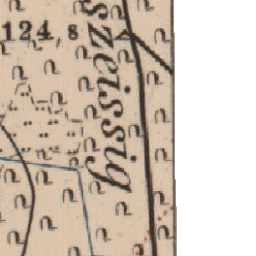 124,8
szeissig